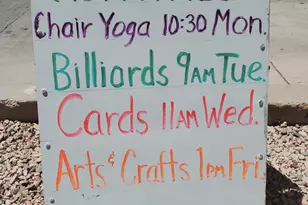 Chair Yoga 10:30 Mon.
Billiards 9AM Tue.
Cards 11AM Wed.
Arts & Crafts 1pm Fri.